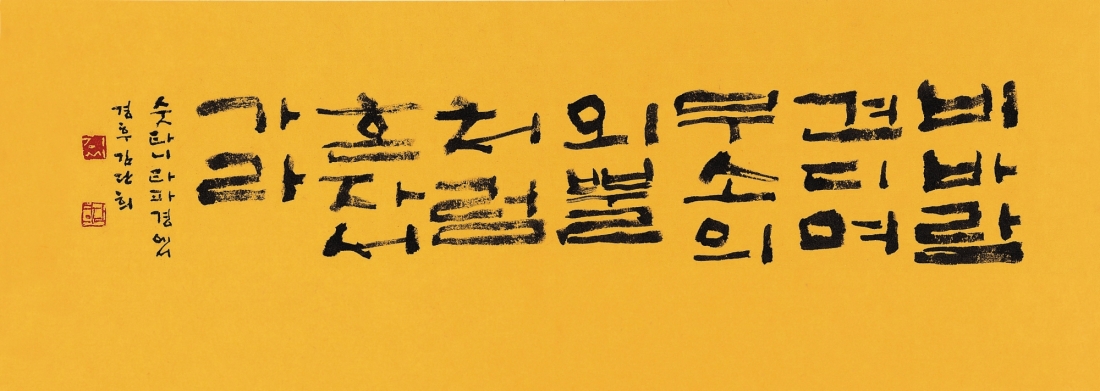 비바람
견디며
무소의
외뿔
처럼
혼자서
가라
숫타니파타경에서
경후김단희